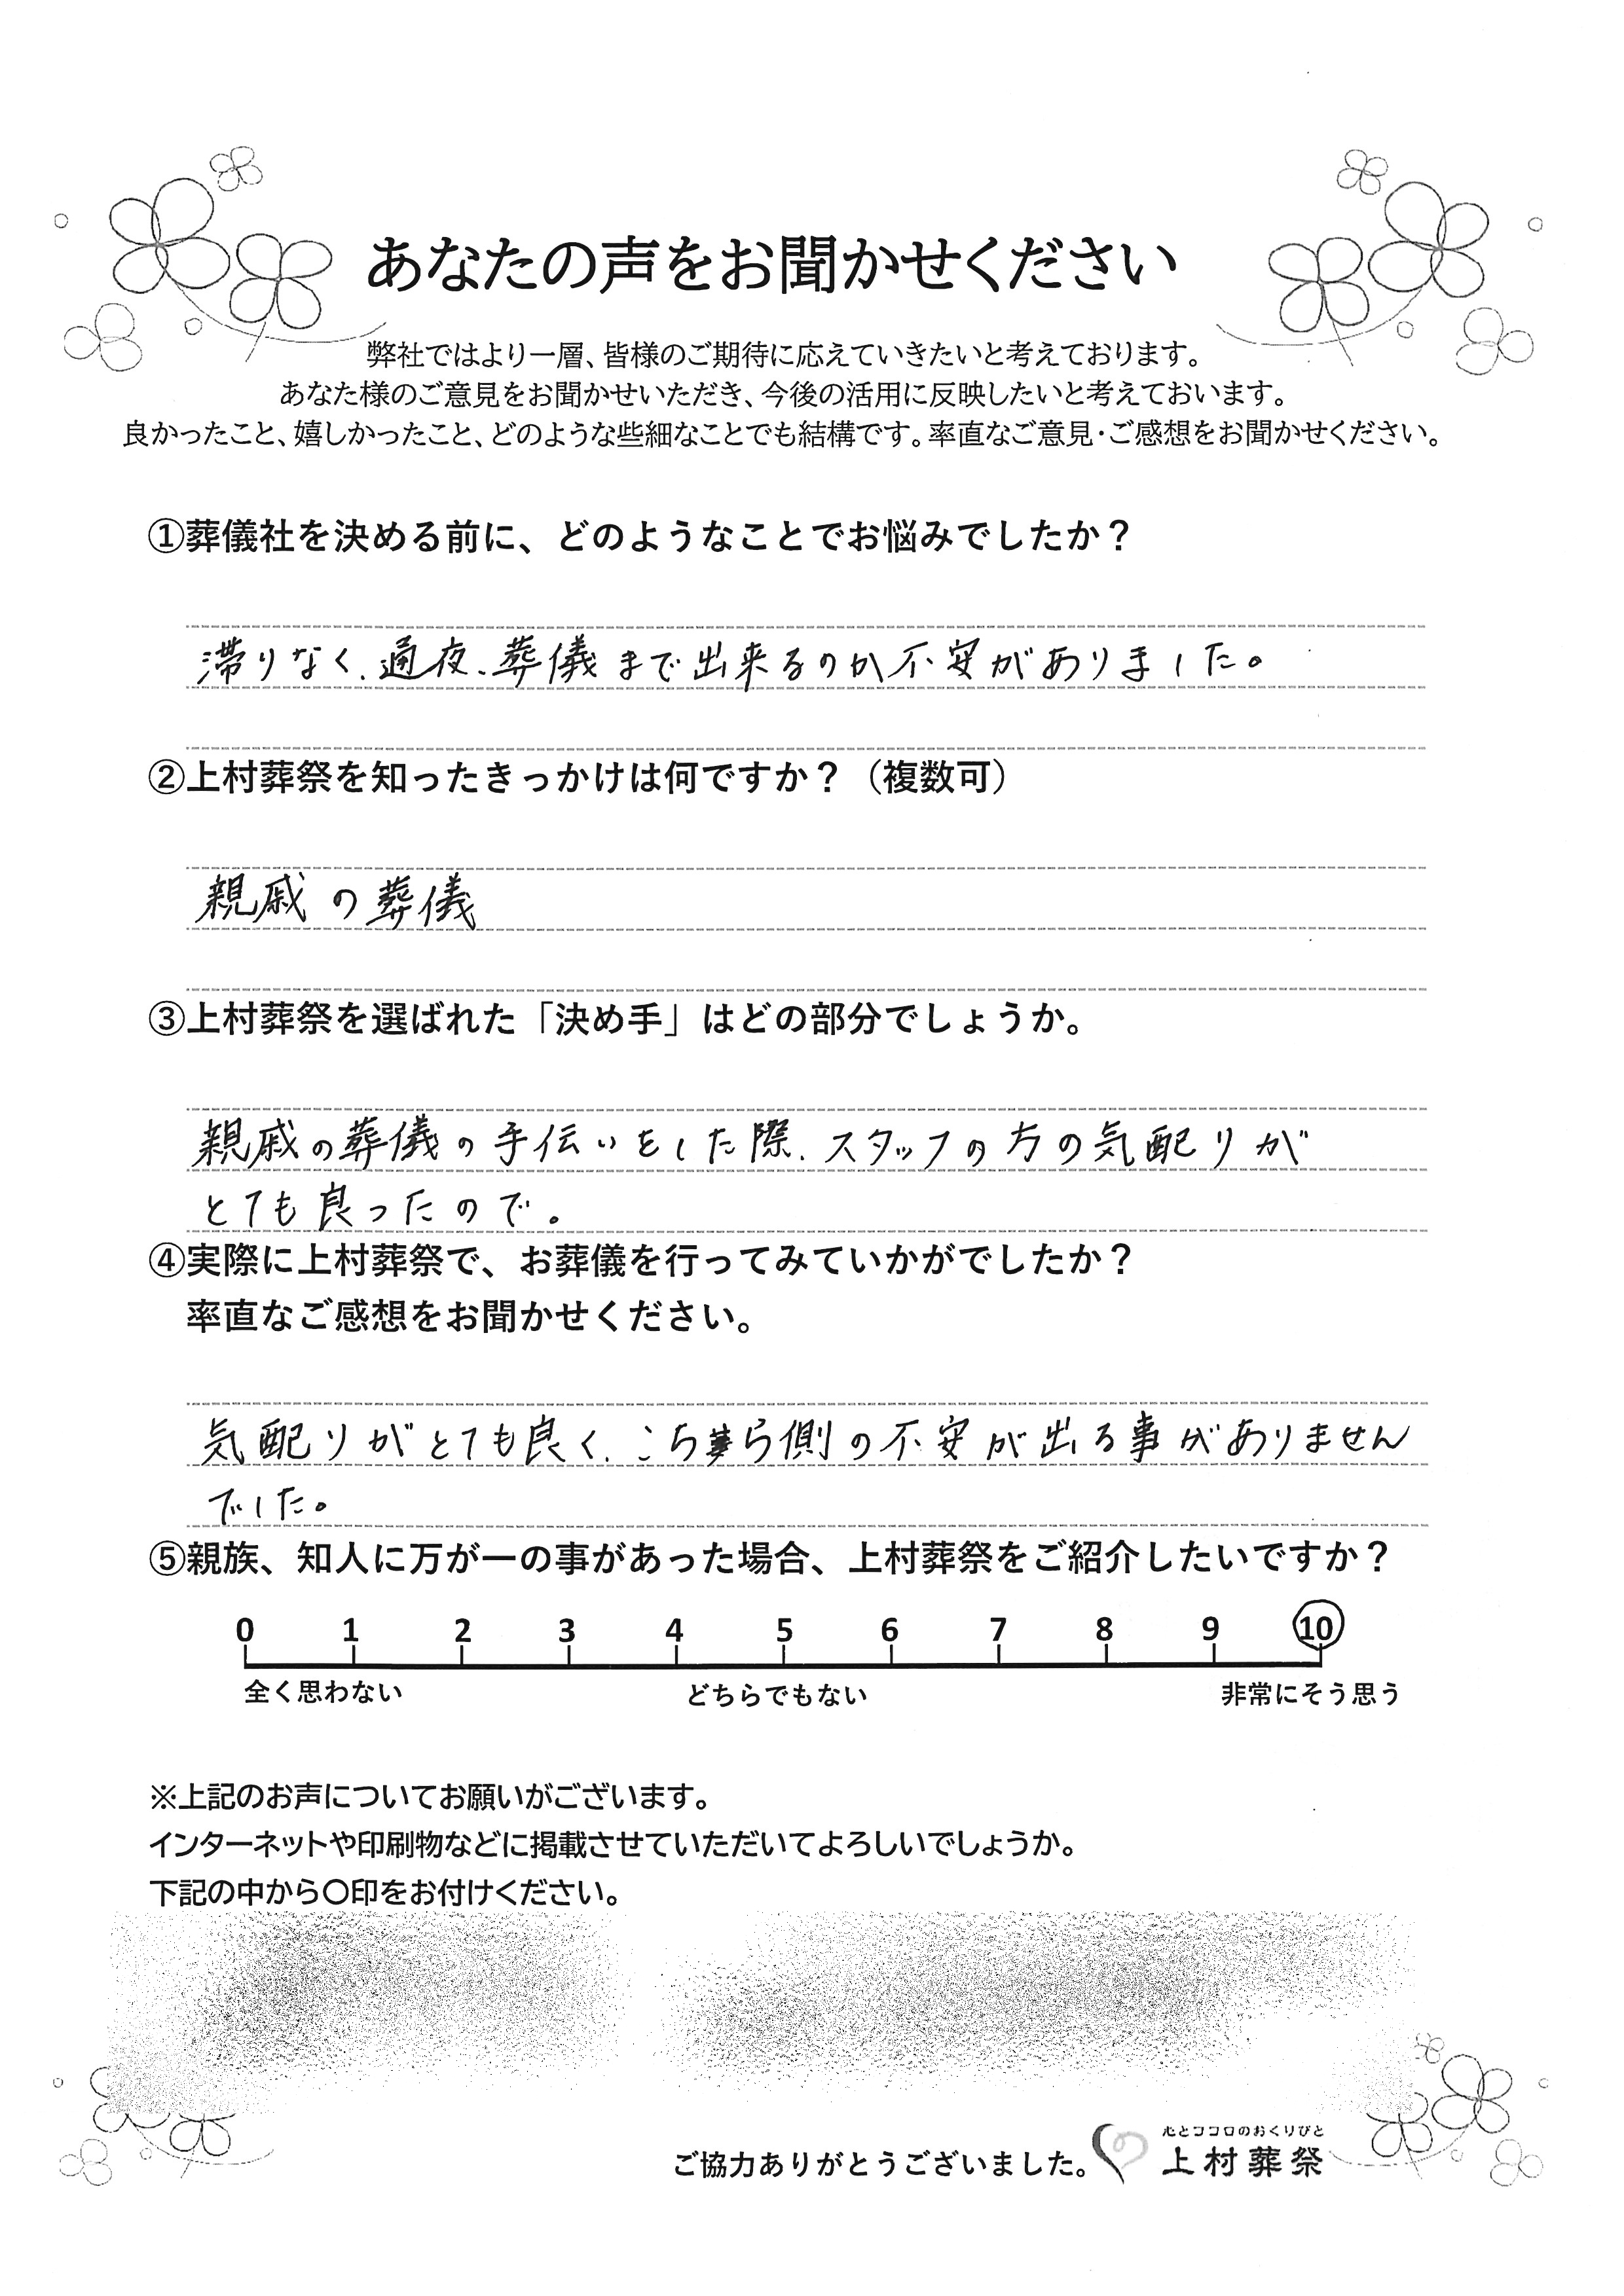 あなたの声をお聞かせください
弊社ではより一層、皆様のご期待に応えていきたいと考えております。
あなた様のご意見をお聞かせいただき、今後の活用に反映したいと考えておいます。
良かったこと、嬉しかったこと、どのような些細なことでも結構です。率直なご意見・ご感想をお聞かせください。
①葬儀社を決める前に、どのようなことでお悩みでしたか？
滞りなく、通夜、葬儀まで出来るのか不安がありました。
②上村葬祭を知ったきっかけは何ですか？（複数可）
親戚の葬儀
③上村葬祭を選ばれた「決め手」はどの部分でしょうか。
親戚の葬儀の手伝いをした際、スタッフの方の気配りが
とても良ったので。
④実際に上村葬祭で、お葬儀を行ってみていかがでしたか？
率直なご感想をお聞かせください。
気配りがとても良く、こちら側の不安が出る事がありません
でした。
⑤親族、知人に万が一の事があった場合、上村葬祭をご紹介したいですか？
0 1 2 3 4 5 6 7 8 9 10
全く思わない どちらでもない 非常にそう思う
※上記のお声についてお願いがございます。
インターネットや印刷物などに掲載させていただいてよろしいでしょうか。
下記の中から〇印をお付けください。
心とココロのおくりびと
ご協力ありがとうございました。 上村葬祭